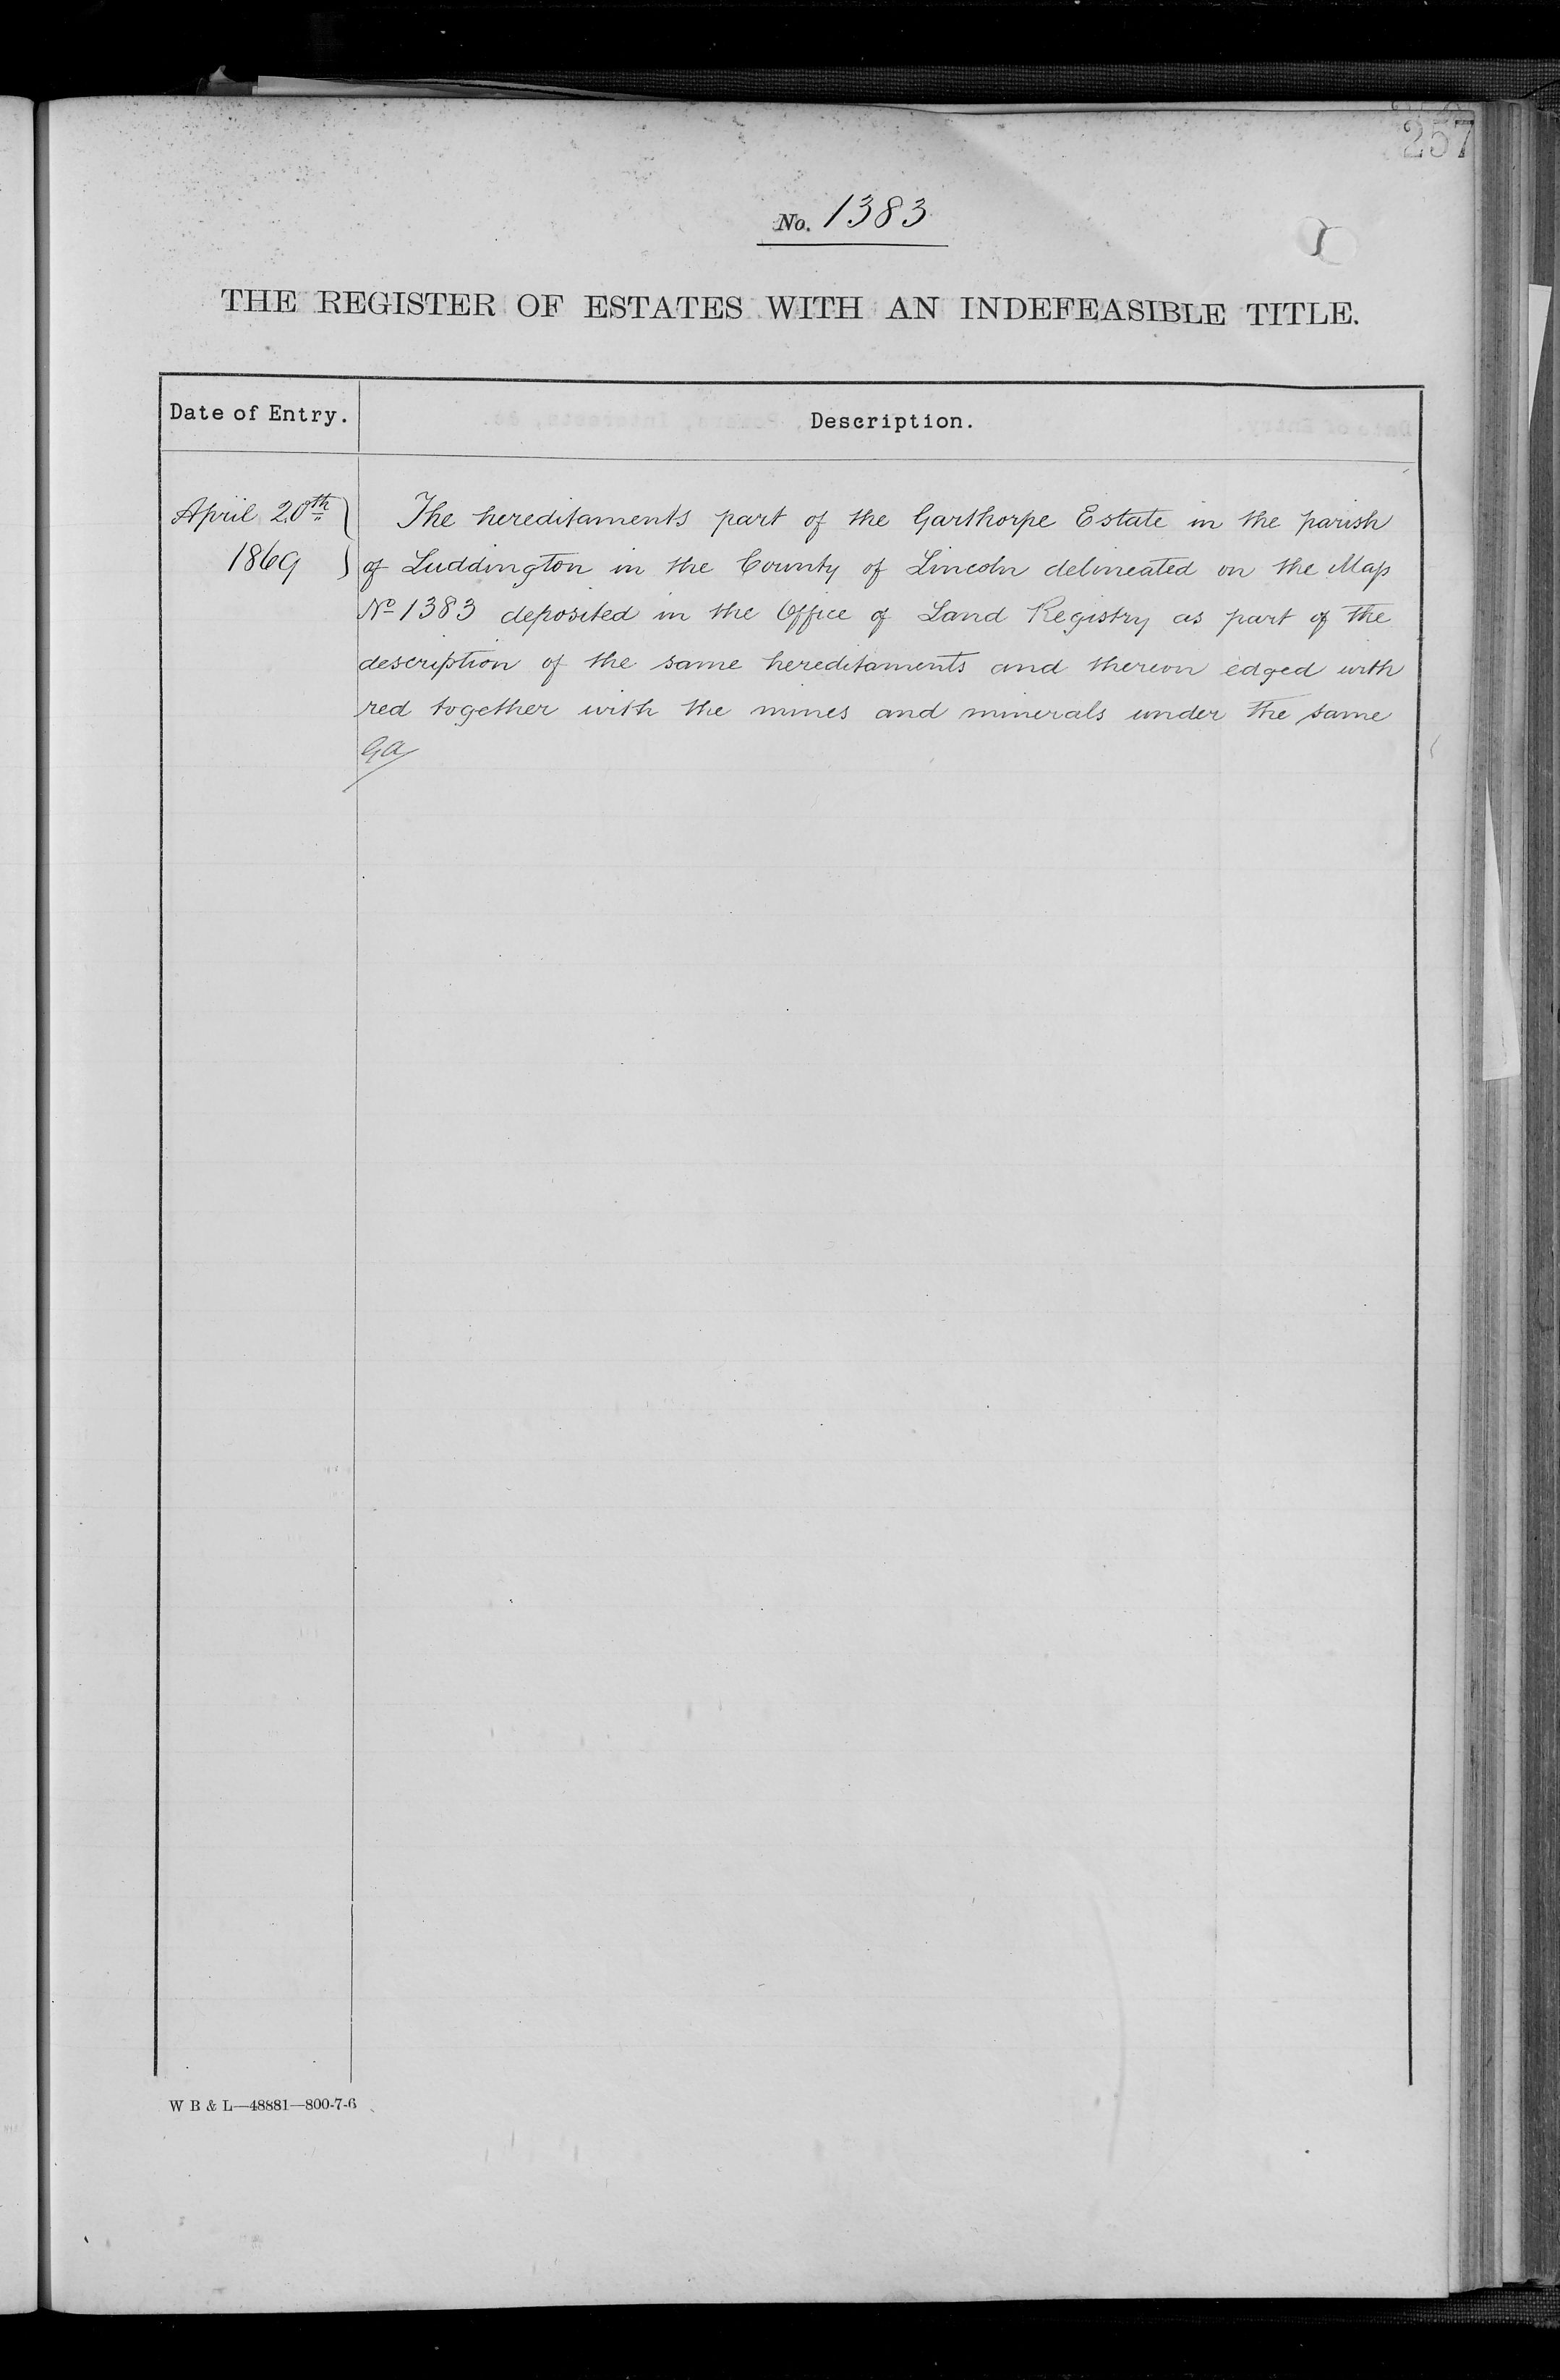 257
No. 1383
THE REGISTER OF ESTATES WITH AN INDEFEASIBLE TITLE.
Date of Entry. Description.
April 20th The hereditaments part of the Garthorpe Estate in the parish
1869 of Luddington in the County of Lincoln delineated on the Map
No 1383 deposited in the Office of Land Registry as part of the
description of the same hereditaments and thereon edged with
red together with the mines and minerals under the same
GA
W B & L—48881—800-7-6